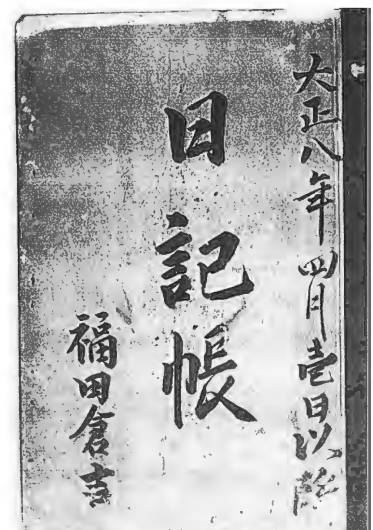 大正八年四月壱日以降
日記帳
福田倉吉